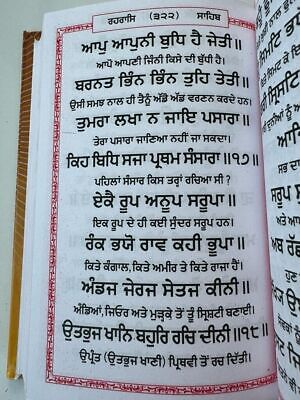 ਰਹਰਾਸਿ (੩੨੨) ਸਾਹਿਬ
ਆਪੁ ਆਪੁਨੀ ਬੁਧਿ ਹੈ ਜੇਤੀ॥
ਆਪੋ ਆਪਣੀ ਜਿੰਨੀ ਕਿਸੇ ਦੀ ਬੁੱਧੀ ਹੈ।
ਬਰਨਤ ਭਿੰਨ ਭਿੰਨ ਤੁਹਿ ਤੇਤੀ॥
ਉਸੀ ਸਮਝ ਨਾਲ ਹੀ ਤੈਨੂੰ ਅੱਡੋ ਅੱਡ ਵਰਣਨ ਕਰਦੇ ਹਨ।
ਤੁਮਰਾ ਲਖਾ ਨ ਜਾਇ ਪਸਾਰਾ॥
ਤੇਰਾ ਪਸਾਰਾ ਜਾਣਿਆ ਨਹੀਂ ਜਾ ਸਕਦਾ।
ਕਿਹ ਬਿਧਿ ਸਜਾ ਪ੍ਰਥਮ ਸੰਸਾਰਾ॥੧੭॥
ਪਹਿਲਾਂ ਸੰਸਾਰ ਕਿਸ ਤਰ੍ਹਾਂ ਰਚਿਆ ਸੀ ?
ਏਕੈ ਰੂਪ ਅਨੂਪ ਸਰੂਪਾ॥
ਇਕ ਰੂਪ ਦੇ ਹੀ ਕਈ ਸੁੰਦਰ ਸਰੂਪ ਹਨ।
ਰੰਕ ਭਯੋ ਰਾਵ ਕਹੀ ਭੂਪਾ॥
ਕਿਤੇ ਕੰਗਾਲ, ਕਿਤੇ ਅਮੀਰ ਤੇ ਕਿਤੇ ਰਾਜਾ ਹੈਂ।
ਅੰਡਜ ਜੇਰਜ ਸੇਤਜ ਕੀਨੀ॥
ਅੰਡਿਆਂ, ਜਿਓਰ ਅਤੇ ਮੁੜ੍ਹਕੇ ਤੋਂ ਤੂੰ ਸ੍ਰਿਸ਼ਟੀ ਬਣਾਈ।
ਉਤਭੁਜ ਖਾਨਿ ਬਹੁਰਿ ਰਚਿ ਦੀਨੀ॥੧੮॥
ਉਪ੍ਰੰਤ (ਉਤਭੁਜ ਖਾਣੀ) ਪ੍ਰਿਥਵੀ ਤੋਂ ਰਚ ਦਿੱਤੀ।